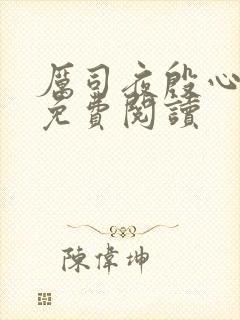 厲司夜殷心
免費閱讀
陳偉坤